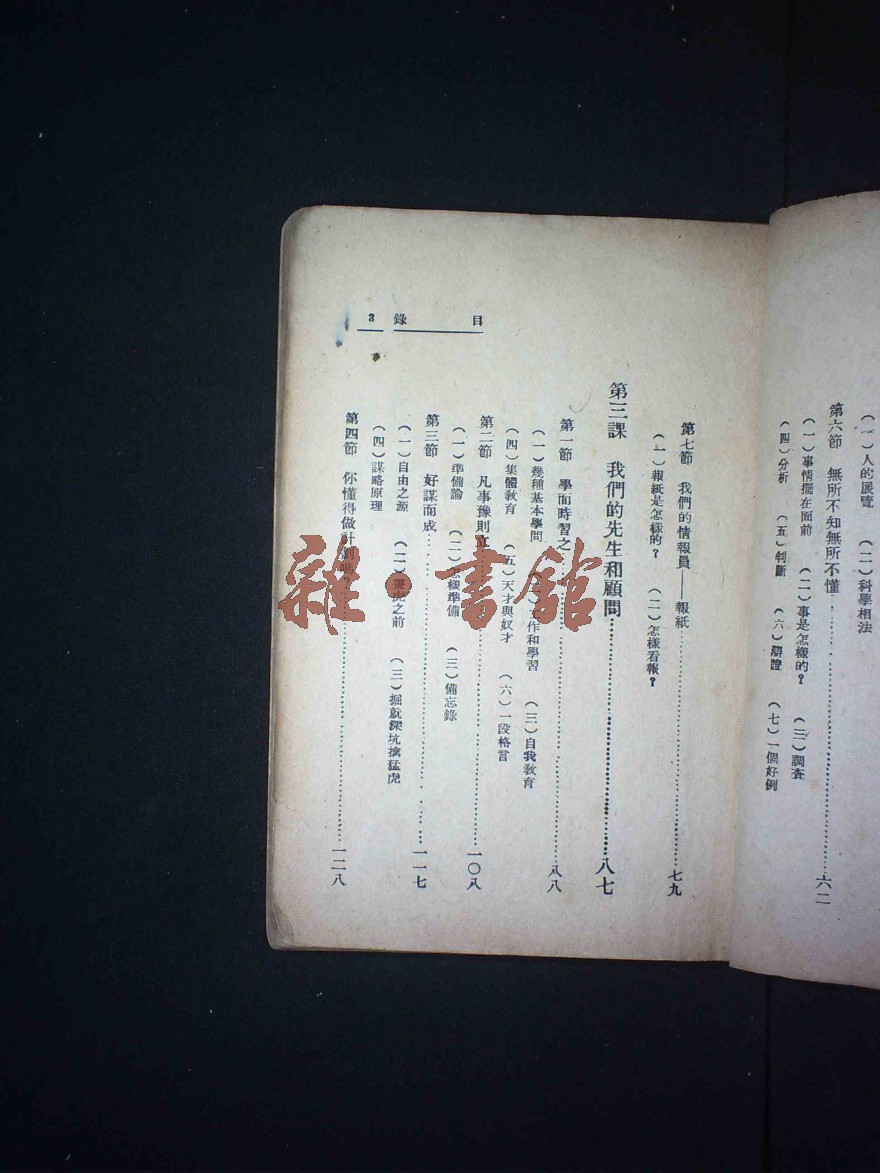 (二)科學相法
(一)人的展覽
第六節 無所不知無所不懂……六二
(一)事情擺在面前 (二)事是怎樣的? (三)調查
(四)分析 (五)判斷 (六)辯證 (七)一個好例
目錄 3
第七節 我們的情報員——報紙……七九
(一)報紙是怎樣的? (二)怎樣看報?
第三課 我們的先生和顧問……八七
第一節 學而時習之……八八
(一)幾種基本學問 作和學習 (三)自我教育
(四)集體教育 (五)天才與奴才 (六)一段格言
第二節 凡事豫則立……一〇八
(一)準備論 (二)怎樣準備 (三)備忘錄
第三節 好謀而成……一一七
(一)自由之源 (二)畫虎之前 (三)掘就深坑擒猛虎
(四)謀略原理
第四節 你懂得做計劃嗎?……一二八
雜·書館